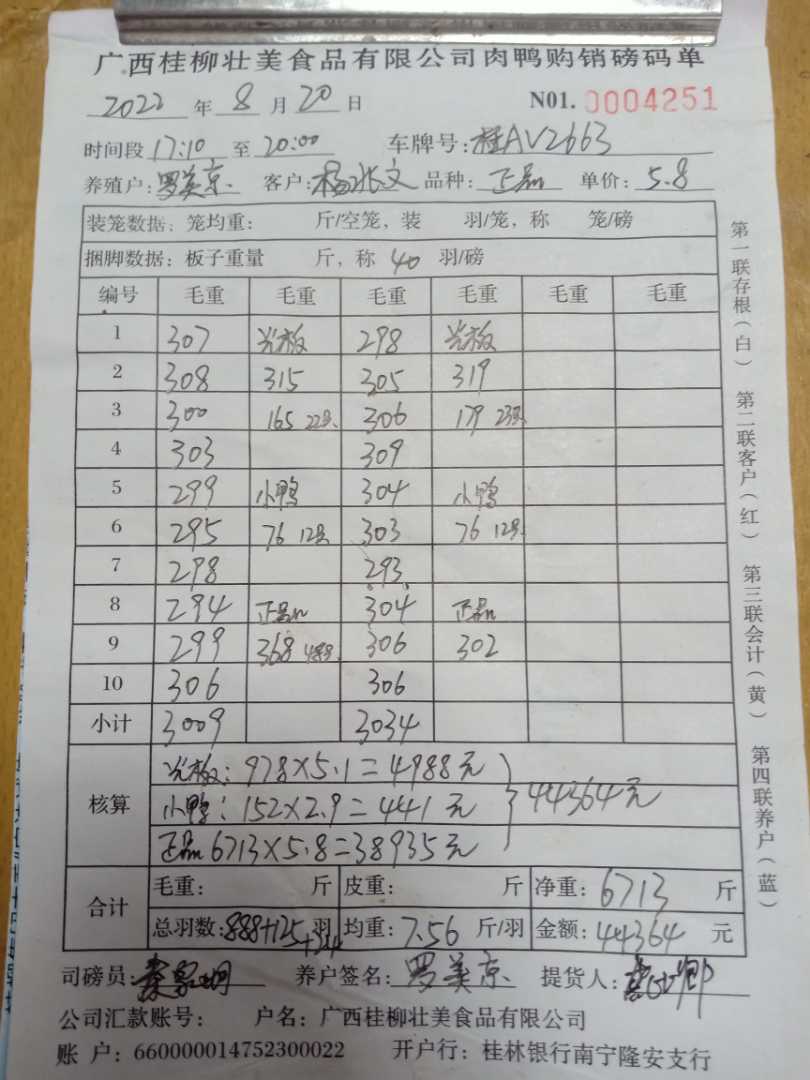 广西桂柳壮美食品有限公司肉鸭购销磅码单
2022 年 8 月 20 日 N01. 0004251
时间段 17:10 至 20:00 车牌号: 桂AV2663
养殖户: 罗美京 客户: 杨兆文 品种: 正品 单价: 5.8
装笼数据: 笼均重: 斤/空笼, 装 羽/笼, 称 笼/磅
捆脚数据: 板子重量 斤, 称 40 羽/磅
编号 毛重 毛重 毛重 毛重 毛重 毛重
1 307 光板 298 光板
2 308 315 305 319
3 300 165 22只 306 179 23只
4 303 309
5 299 小鸭 304 小鸭
6 295 76 12只 303 76 12只
7 298 293
8 294 正品 304 正品
9 299 368 48只 306 302
10 306 306
小计 3009 3034
核算 光板: 978×5.1=4988元
小鸭: 152×2.9=441元 44364元
正品 6713×5.8=38935元
合计 毛重: 斤 皮重: 斤 净重: 6713 斤
总羽数: 888+125+24 羽 均重: 7.56 斤/羽 金额: 44364 元
司磅员: 养户签名: 罗美京 提货人:
公司汇款账号: 户名: 广西桂柳壮美食品有限公司
账 户: 660000014752300022 开户行: 桂林银行南宁隆安支行
第一联存根(白) 第二联客户(红) 第三联会计(黄) 第四联养户(蓝)